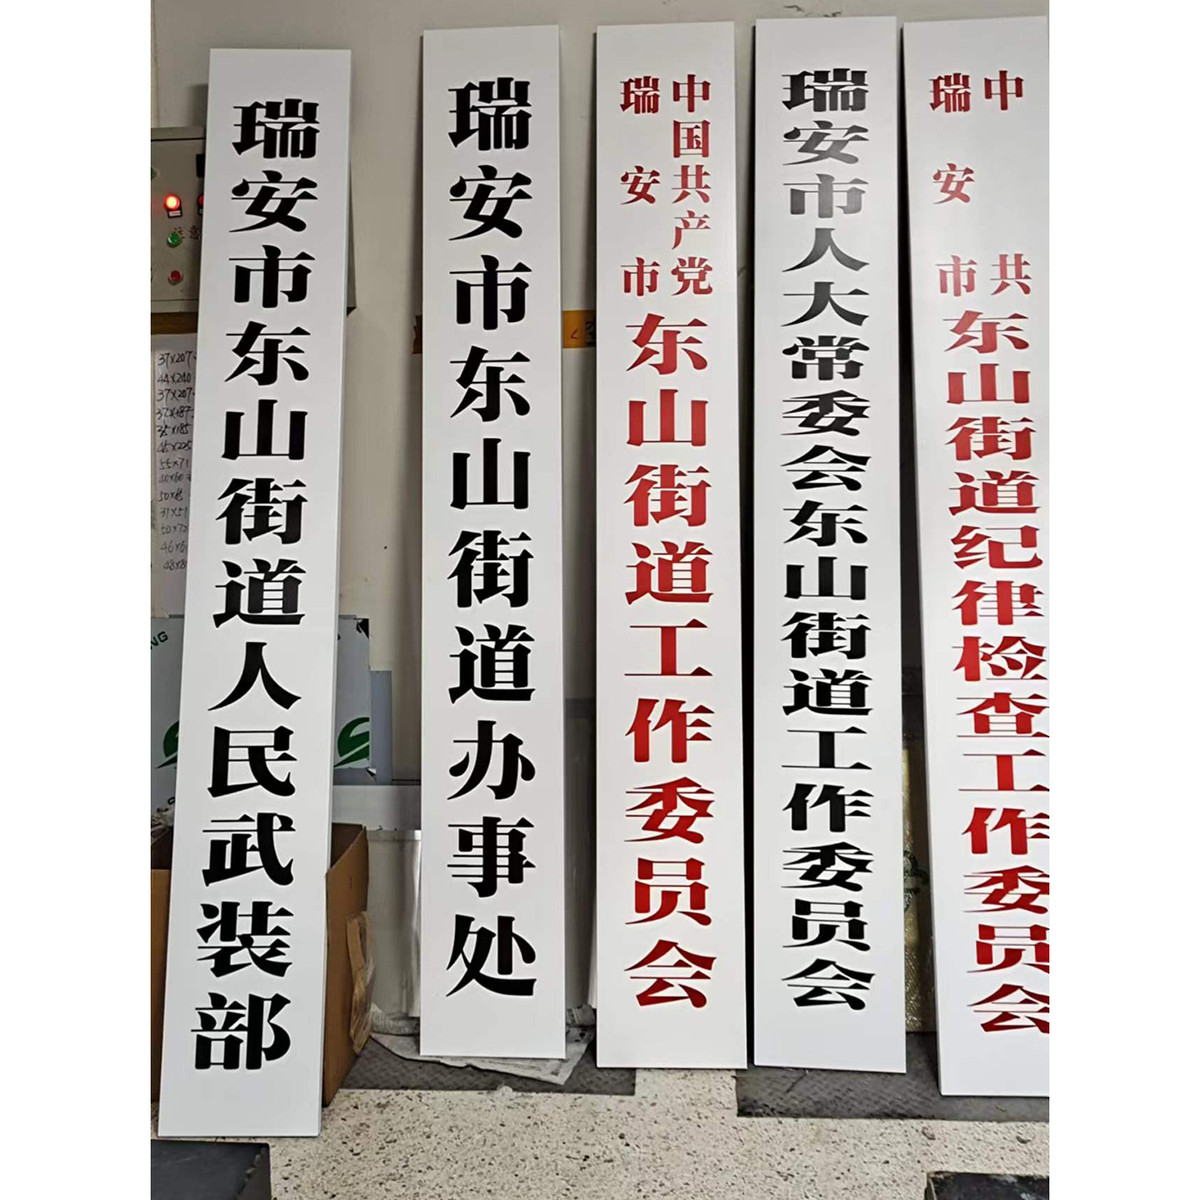 瑞安市东山街道人民武装部
瑞安市东山街道办事处
中国共产党
瑞安市
东山街道工作委员会
瑞安市人大常委会东山街道工作委员会
中共
瑞安市
东山街道纪律检查工作委员会
注意
37x207
44x240
37x207